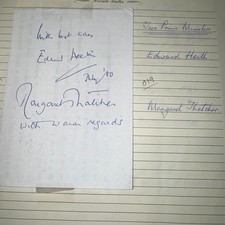 Edward Heath
July '80
Margaret Thatcher
with warm regards
Two Prime Ministers
Edward Heath
019
Margaret Thatcher